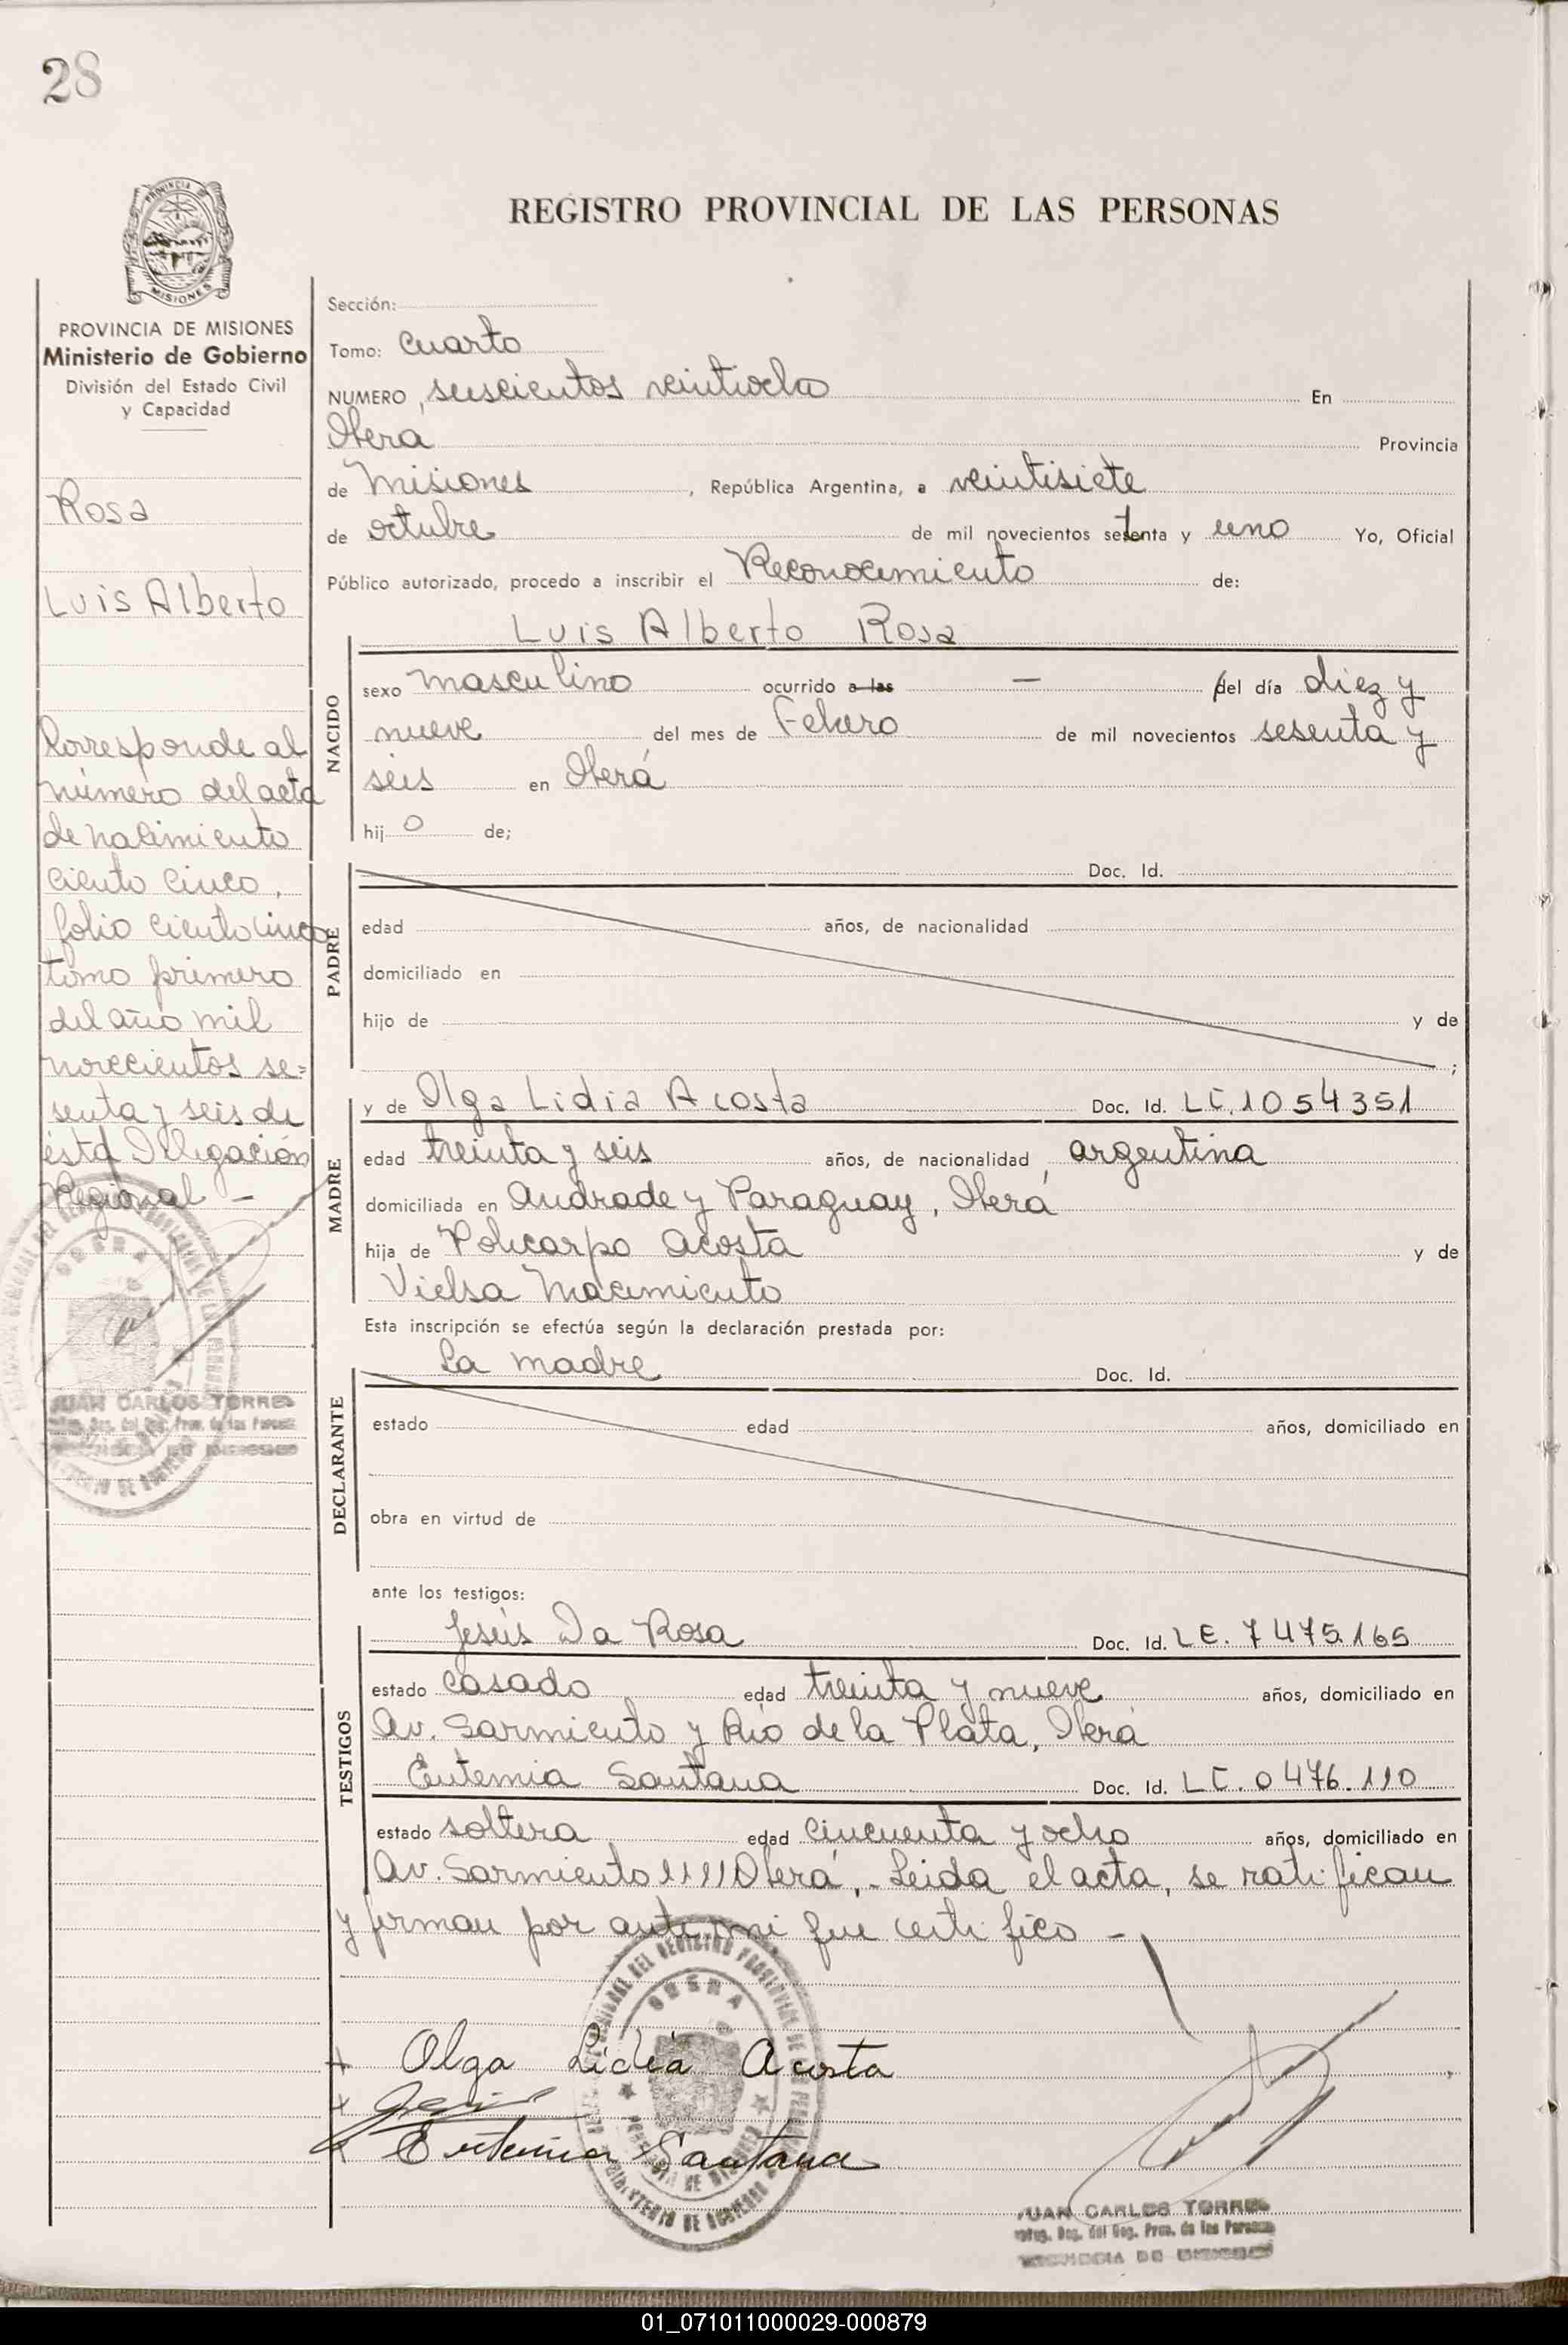 28
REGISTRO PROVINCIAL DE LAS PERSONAS
PROVINCIA DE MISIONES
Ministerio de Gobierno
División del Estado Civil
y Capacidad
Rosa
Luis Alberto
Corresponde al
número del acta
de nacimiento
ciento cinco,
folio ciento cinco
tomo primero
del año mil
novecientos se=
senta y seis de
ésta Delegación
Regional -
JUAN CARLOS TORRES
Sección:
Tomo: Cuarto
NUMERO, seiscientos veintiocho En
Oberá Provincia
de Misiones, República Argentina, a veintisiete
de octubre de mil novecientos setenta y uno Yo, Oficial
Público autorizado, procedo a inscribir el Reconocimiento de:
NACIDO
Luis Alberto Rosa
sexo masculino ocurrido a las — del día diez y
nueve del mes de Febrero de mil novecientos sesenta y
seis en Oberá
hijo de;
PADRE
Doc. Id.
edad años, de nacionalidad
domiciliado en
hijo de y de
;
MADRE
y de Olga Lidia Acosta Doc. Id. LC. 1054351
edad treinta y seis años, de nacionalidad, argentina
domiciliada en Andrade y Paraguay, Oberá
hija de Policarpo Acosta y de
Vielsa Nacimiento
Esta inscripción se efectúa según la declaración prestada por:
DECLARANTE
La madre Doc. Id.
estado edad años, domiciliado en
obra en virtud de
ante los testigos:
TESTIGOS
Jesús Da Rosa Doc. Id. LE. 7475.165
estado casado edad treinta y nueve años, domiciliado en
Av. Sarmiento y Río de la Plata, Oberá
Eutemia Santana Doc. Id. LC. 0476.110
estado soltera edad cincuenta y ocho años, domiciliado en
Av. Sarmiento 1111 Oberá,.- Leida el acta, se ratifican
y firman por ante mi que certifico -
OBERA
+ Olga Lidia Acosta
Eutemia Santana
JUAN CARLOS TORRES
01_071011000029-000879